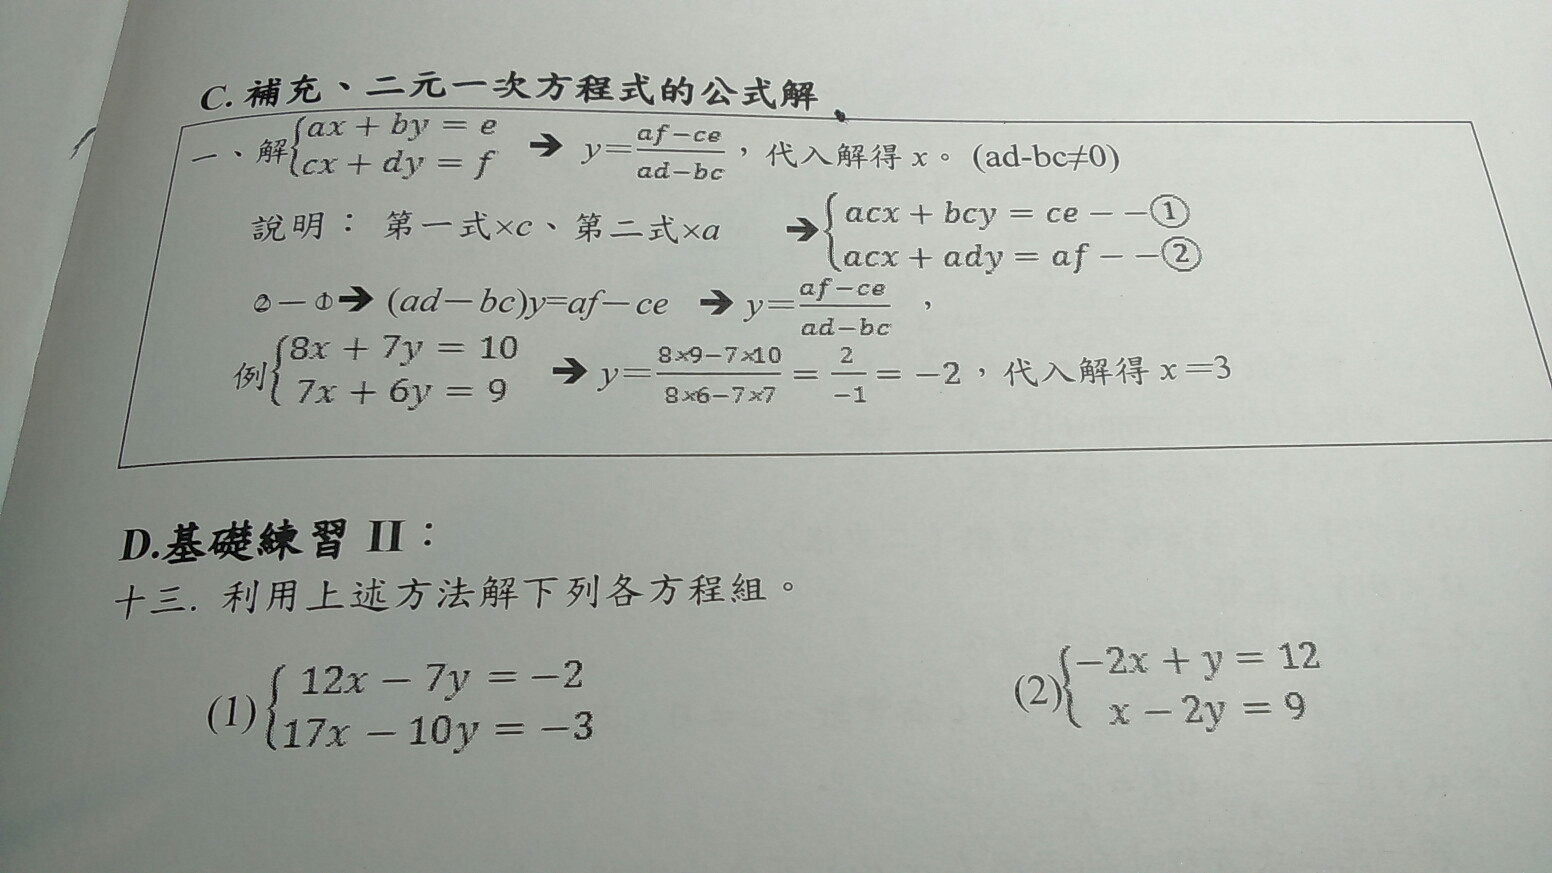 C. 補充、二元一次方程式的公式解
一、解{ax + by = e
cx + dy = f ➔ y=af−ce/ad−bc，代入解得 x。(ad-bc≠0)
說明： 第一式×c、第二式×a ➔ {acx + bcy = ce − −①
acx + ady = af − −②
②－①➔ (ad－bc)y=af－ce ➔ y=af−ce/ad−bc ，
例{8x + 7y = 10
7x + 6y = 9 ➔ y=8×9−7×10/8×6−7×7 = 2/−1 = −2，代入解得 x＝3
D.基礎練習 II：
十三. 利用上述方法解下列各方程組。
(1){12x − 7y = −2
17x − 10y = −3
(2){−2x + y = 12
x − 2y = 9